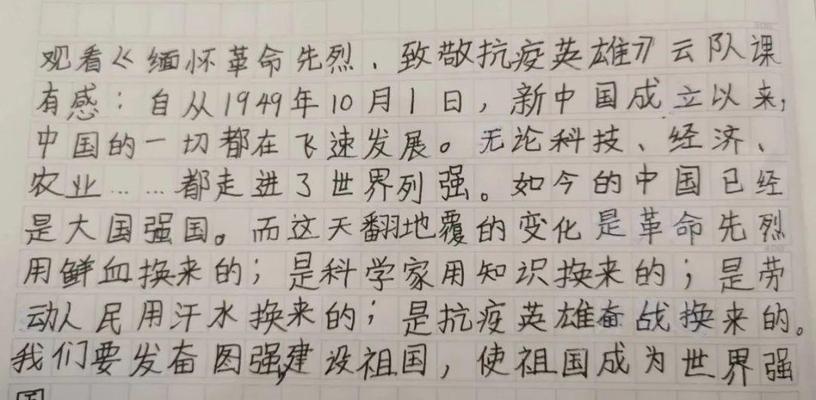 观看《缅怀革命先烈、致敬抗疫英雄》云队课
有感：自从1949年10月1日，新中国成立以来，
中国的一切都在飞速发展。无论科技、经济、
农业……都走进了世界列强。如今的中国已经
是大国强国。而这天翻地覆的变化是革命先烈
用鲜血换来的；是科学家用知识换来的；是劳
动人民用汗水换来的；是抗疫英雄奋战换来的。
我们要发奋图强，建设祖国，使祖国成为世界强